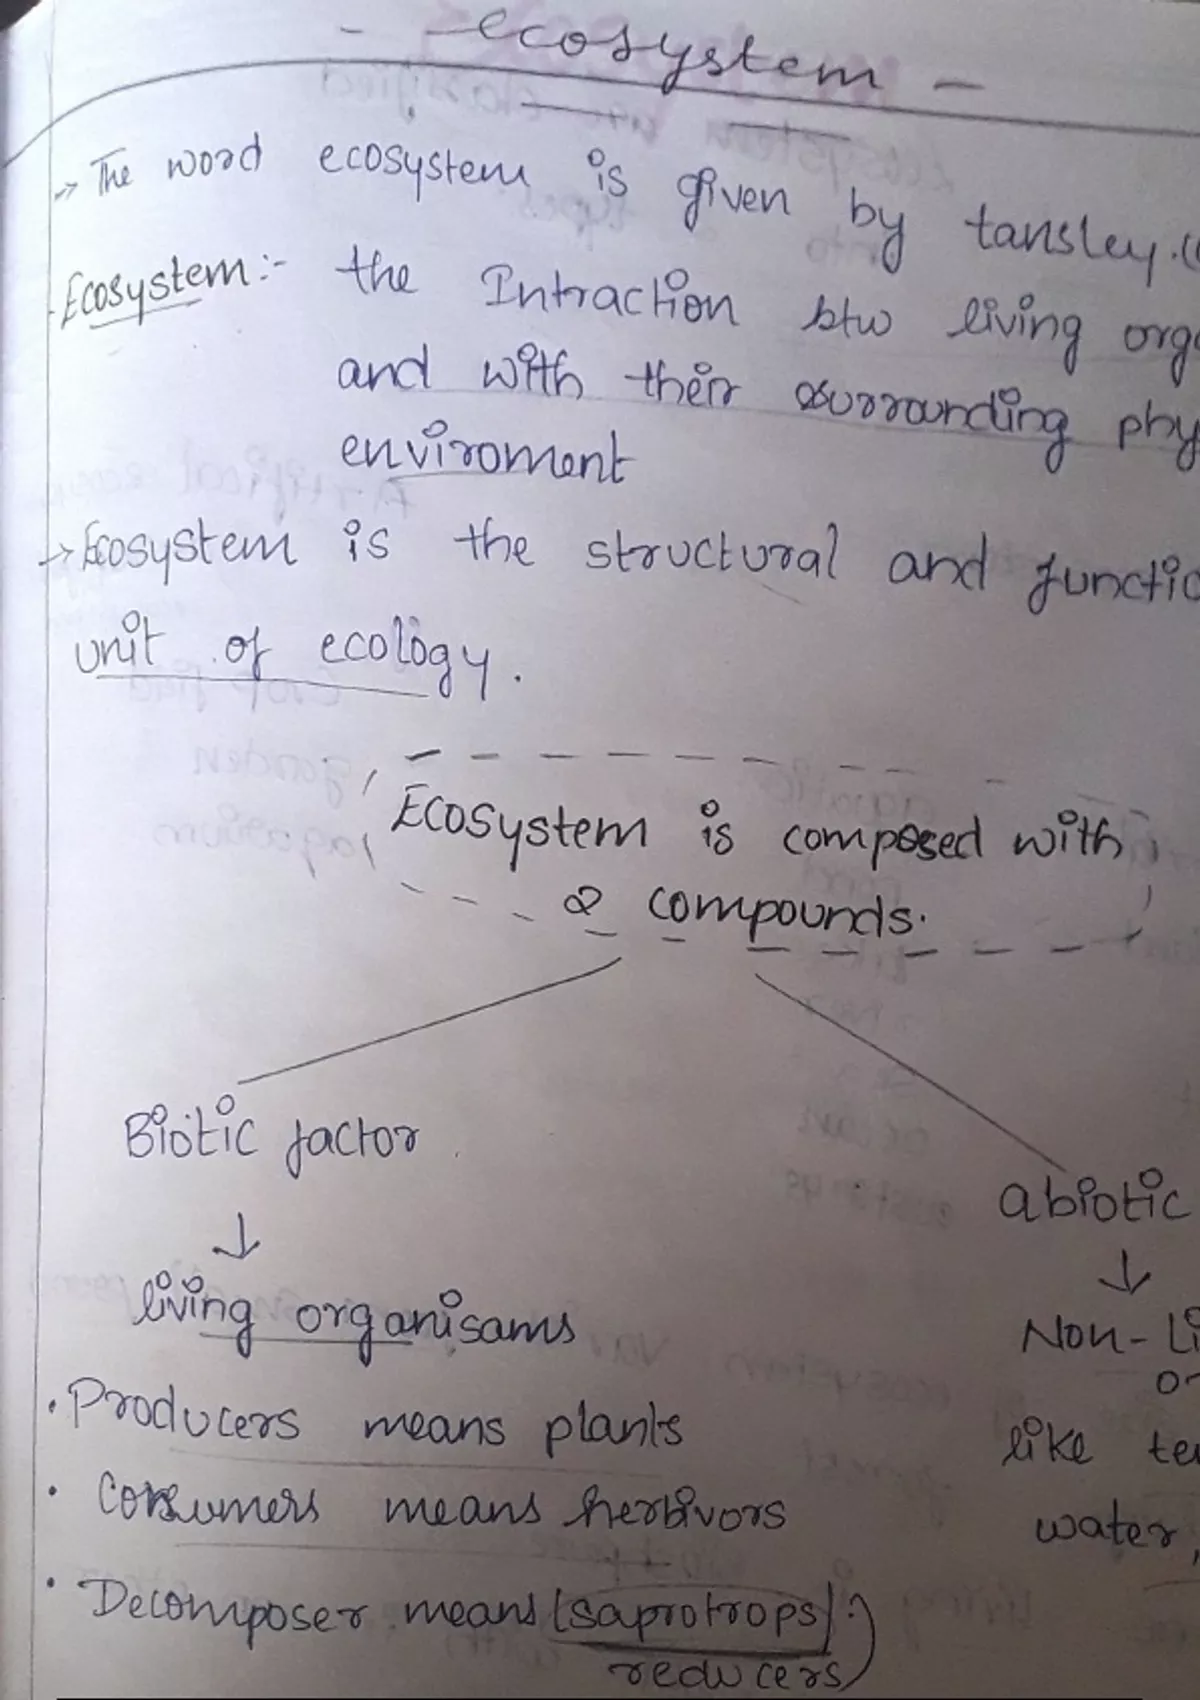 - ecosystem -
→ The word ecosystem is given by tansley.(
Ecosystem:- the Intraction btw living orga
and with their surrounding phy
enviroment
→ Ecosystem is the structural and functio
unit of ecology.
Ecosystem is composed with
2 compounds.
Biotic factor
abiotic
↓
↓
living organisams
Non-Li
or
• Producers means plants
like te
• Consumers means herbivors
water,
• Decomposer means (saprotrops)
reducers)